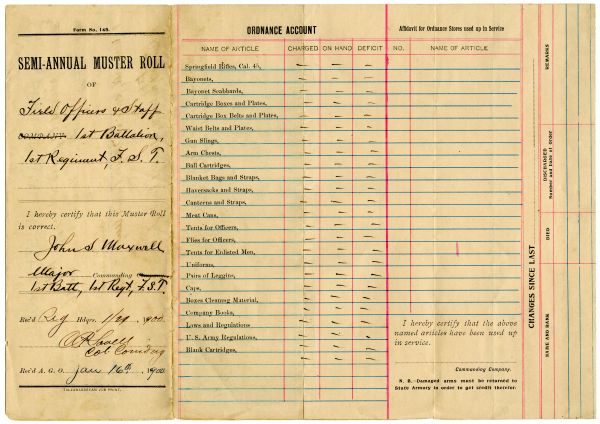 Form No. 145.
SEMI-ANNUAL MUSTER ROLL
OF
Field Officers & Staff
COMPANY 1st Battalion,
1st Regiment, F. S. T.
I hereby certify that this Muster Roll
is correct.
John S Maxwell
Major Commanding
1st Batt, 1st Regt, F.S.T.
Rec'd Reg Hdqrs. 1900.
Col Comdg
Rec'd A. G. O. Jan 16th 1900
TALLAHASSEEAN JOB PRINT.
ORDNANCE ACCOUNT
NAME OF ARTICLE CHARGED ON HAND DEFICIT
Springfield Rifles, Cal. 45,
Bayonets,
Bayonet Scabbards,
Cartridge Boxes and Plates,
Cartridge Box Belts and Plates,
Waist Belts and Plates,
Gun Slings,
Arm Chests,
Ball Cartridges,
Blanket Bags and Straps,
Haversacks and Straps,
Canteens and Straps,
Meat Cans,
Tents for Officers,
Flies for Officers,
Tents for Enlisted Men,
Uniforms,
Pairs of Leggins,
Caps,
Boxes Cleaning Material,
Company Books,
Laws and Regulations
U. S. Army Regulations,
Blank Cartridges,
Affidavit for Ordnance Stores used up in Service
NO. NAME OF ARTICLE
I hereby certify that the above
named articles have been used up
in service.
Commanding Company.
N. B.—Damaged arms must be returned to
State Armory in order to get credit therefor.
CHANGES SINCE LAST
REMARKS
DISCHARGED
Number and Date of Order
DIED
NAME AND RANK